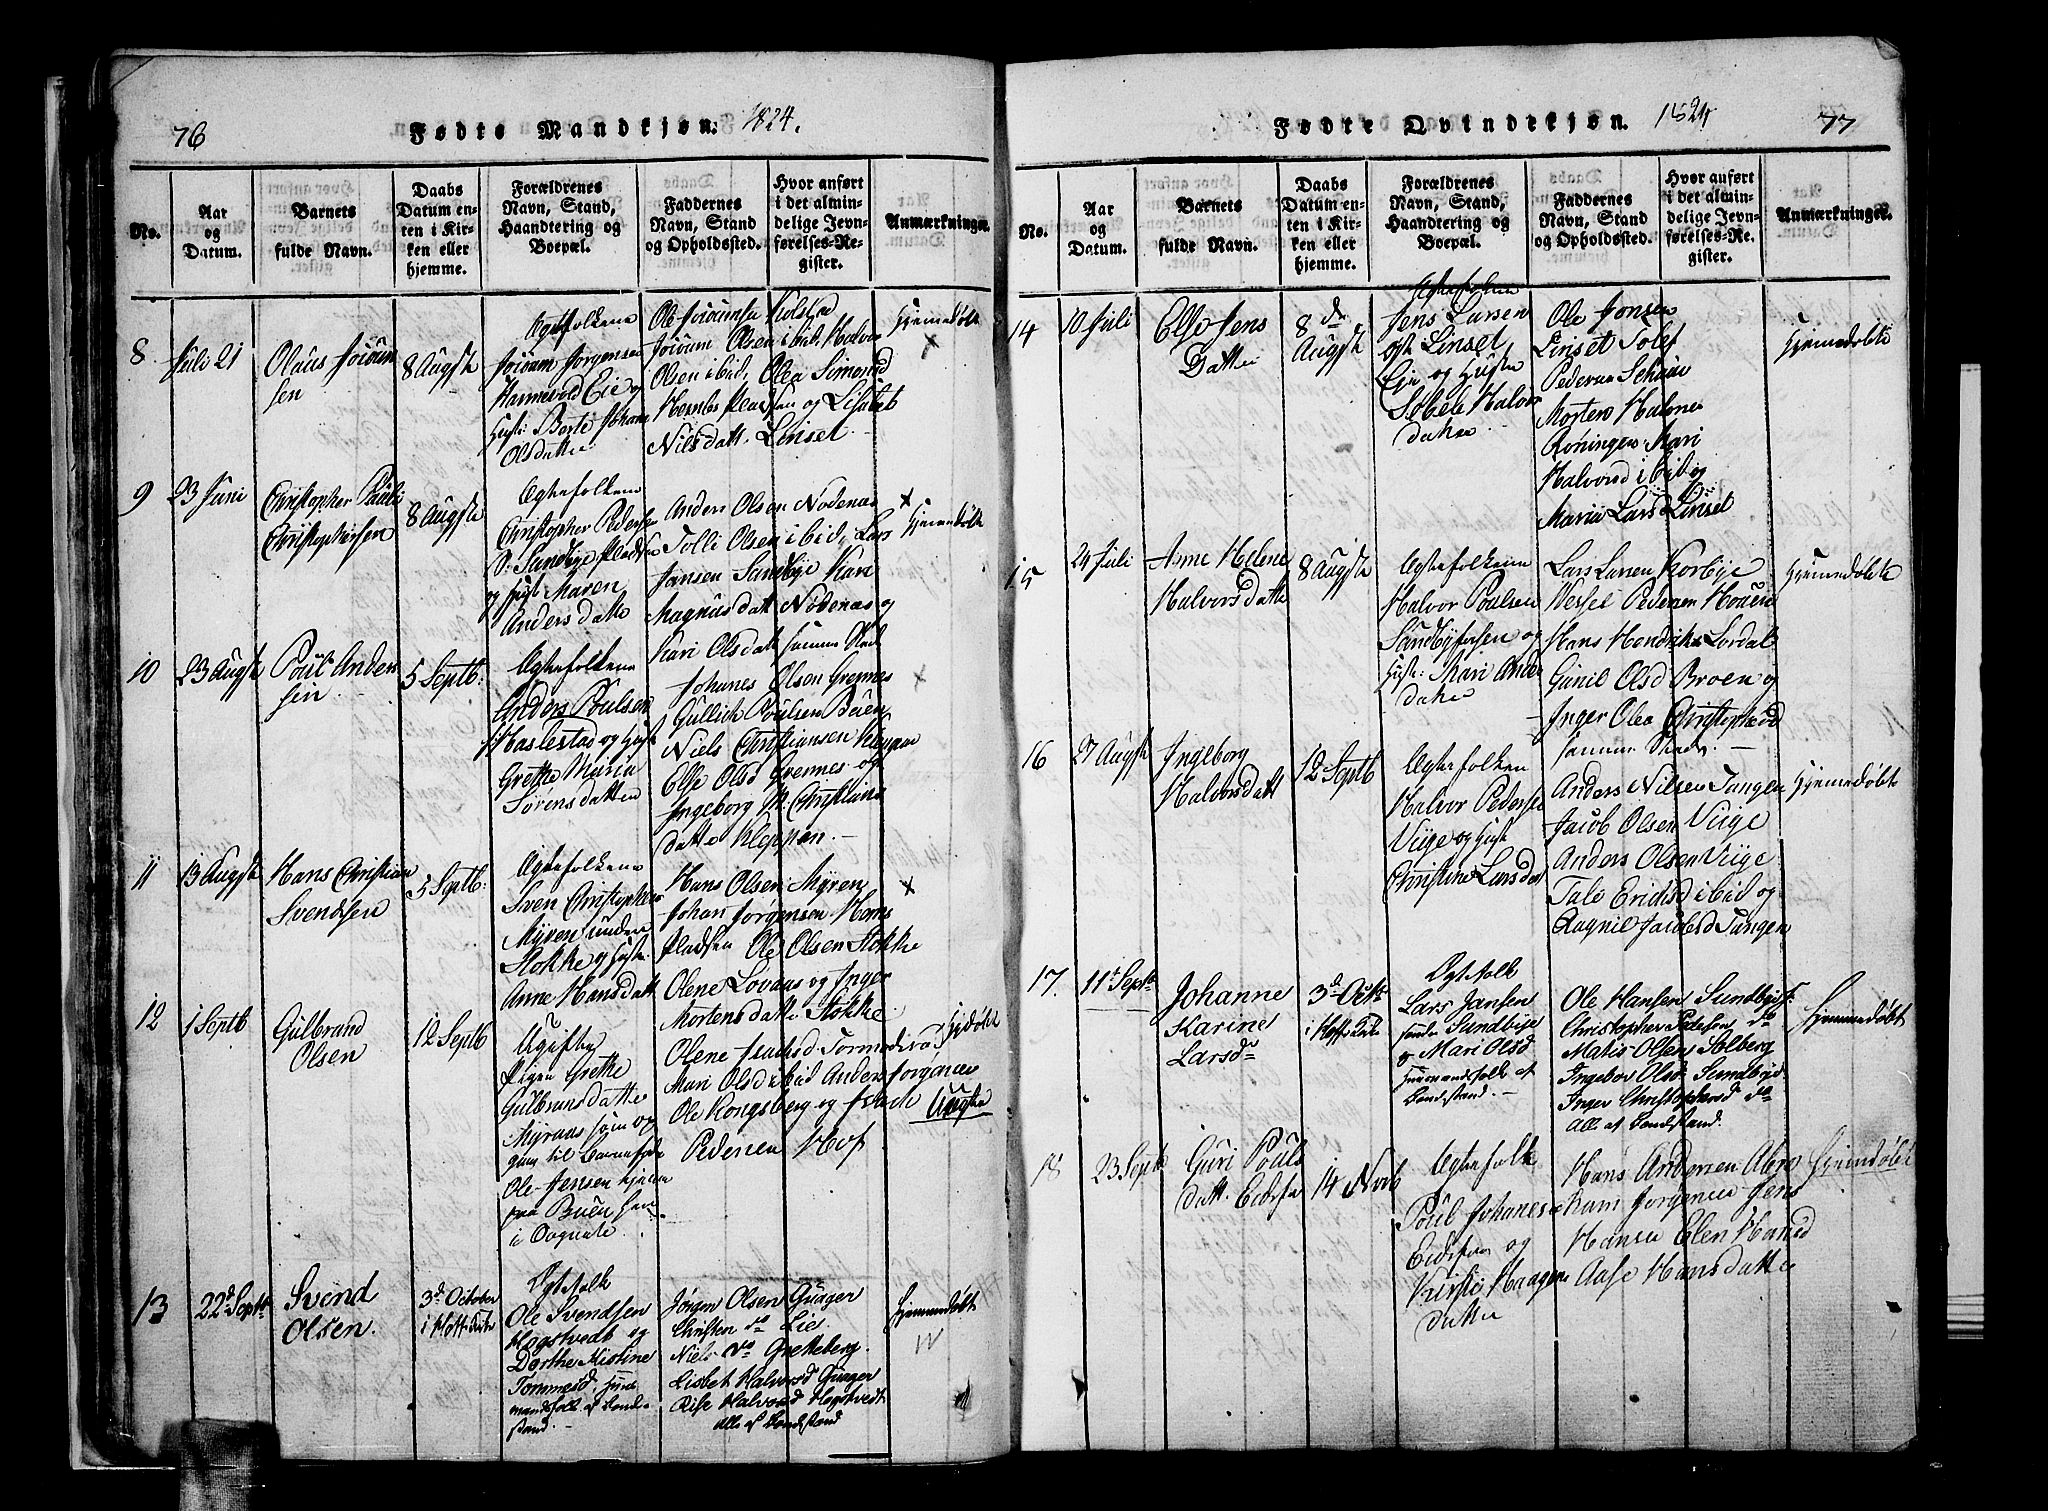 76
Fødte Mandkjøn. 1824.
No.
Aar
og
Datum.
Barnets
fulde Navn.
Daabs
Datum en-
ten i Kir-
ken eller
hjemme.
Forældrenes
Navn, Stand,
Haandtering og
Boepæl.
Faddernes
Navn, Stand
og Opholdssted.
Hvor anført
i det almin-
delige Jevn-
førelses-Re-
gister.
Anmærkninger.
8
Juli 21
Olaus
sen
8 Augst
Ægtefolkene
Jørgensen
Eie og
Berte Johane
Olsdatter
Olsen ibid. Halvor
Olsen ibid, Olea Simensd
Pladsen og Lisabeth
Nilsdatt. Linset
Hjemedøbt
×
9
23 Juni
Christopher Pauli
Christophersen
8 Augste
Ægtefolkene
Christopher Pedersen
Sandbye Pladsen
og Hust Maren
Andersdatte
Anders Olsen Nødenas
Tolli Olsen ibid, Lars
Jansen Sandbye Kari
Magnusdatt Nødenas og
Kari Olsdatt samme Sted
×
Hjemedøbt
10
23 Augst
Poul Ander
sen
5 Septb:
Ægtefolkene
Anders Poulsen
Haslestad og Hust
Grethe Maria
Sørensdatter
Johanes Olsen Grennes
Gullich Poulsen Buen
Niels Christiansen Kleppan
Else Olsd Grennes og
Ingeborg M. Christians
datte Kleppan.
×
11
13 Augst
Hans Christian
Svendsen
5 Septb:
Ægtefolkene
Sven Christophers
Myren under
Stokke og Hust.
Anne Hansdatt
Hans Olsen Myren
Johan Jørgensen Hams
pladsen Ole Olsen Stokke
Olene Lovaas og Inger
Mortensdatte Stokke
×
12
1 Septb
Gulbrand
Olsen
12 Septb
Ugifte
Pigen Grethe
Gulbransdatte
Myraas som og
gav til Barnefader
Ole Jensen
paa Buen
i
Olene
Mari Olsd ibid Anders Jørgensen
Ole Kongsberg og
Pedersen Hof
Hjdøbt
Uægte
13
22d Septbr
Svend
Olsen.
3d October
i Hoff Kirke
Ægtefolk
Ole Svendsen
Hogstvedt og
Dorthe Kistine
Tommesd, Huus
mandsfolk af Bonde-
stand.
Jørgen Olsen Guager
Christen do Lie
Niels do Grekeberg.
Lisbet Halvorsd Guager
Rise Halvorsd Hogstvedt
Alle af Bondestand
Hjemmedøbt
77
Fødte Qvindekjøn. 1824
No.
Aar
og
Datum.
Barnets
fulde Navn.
Daabs
Datum en-
ten i Kir-
ken eller
hjemme.
Forældrenes
Navn, Stand,
Haandtering og
Boepæl.
Faddernes
Navn, Stand
og Opholdssted.
Hvor anført
i det almin-
delige Jevn-
førelses-Re-
gister.
Anmærkninger.
14
10 Juli
Else Jens
Datter
8de
Augst
Ægtefolkene
Jens Larsen
Linset
Eje og Hustr
Sobele Halvor
datter
Ole Jonsen
Linset Tolef
Pedersen
Morten
Røningen Mari
Halvorsd ibid og
Maria Larsd Linset
Hjemedøbte
15
24 Juli
Anne Helene
Halvorsdatte
8 Augste
Ægtefolkene
Halvor Poulsen
og
Hust: Mari Anders
datter
Lars Larsen Korbye
Wessel Pedersen
Hans Hendriks Lordal
Gunil Olsd Broen og
Inger Olea Christophersd
samme Sted.
Hjemedøbte
16
27 Augst
Ingeborg
Halvorsdatt
12 Septb
Ægtefolkene
Halvor Pedersen
Viige og Hust
Christine Larsdat
Anders Nilsen Tangen
Jacob Olsen Viige
Anders Olsen Viige
Tale Eriksd ibid og
Ragnil Jacobsd Tangen
Hjemedøbt
17.
11t Septbr
Johanne
Karine
Larsdr
3d Octbr
i Hoffs Kirke
Ægtefolk
Lars Jansen
Sundbye
og Mari Olsd
Huusmandsfolk af
Bondestand.
Ole Hansen Sundbye
Christopher Pedersen do
Matis Olsen Solberg
Ingebor Olsd Sundbye
Inger Christophersd do
Alle af Bondestand.
Hjemmedøbt
18
23 Septb
Guri Pouls
datt. Eidsfos
14 Novb
Ægtefolk
Poul Johanesen
Eidsfos og
Kirstie Haagens
datter
Hans Andersen Abra
ham Jørgensen Jens
Hansen Elen Hansd
Aase Hansdatter
Hjemedøbt